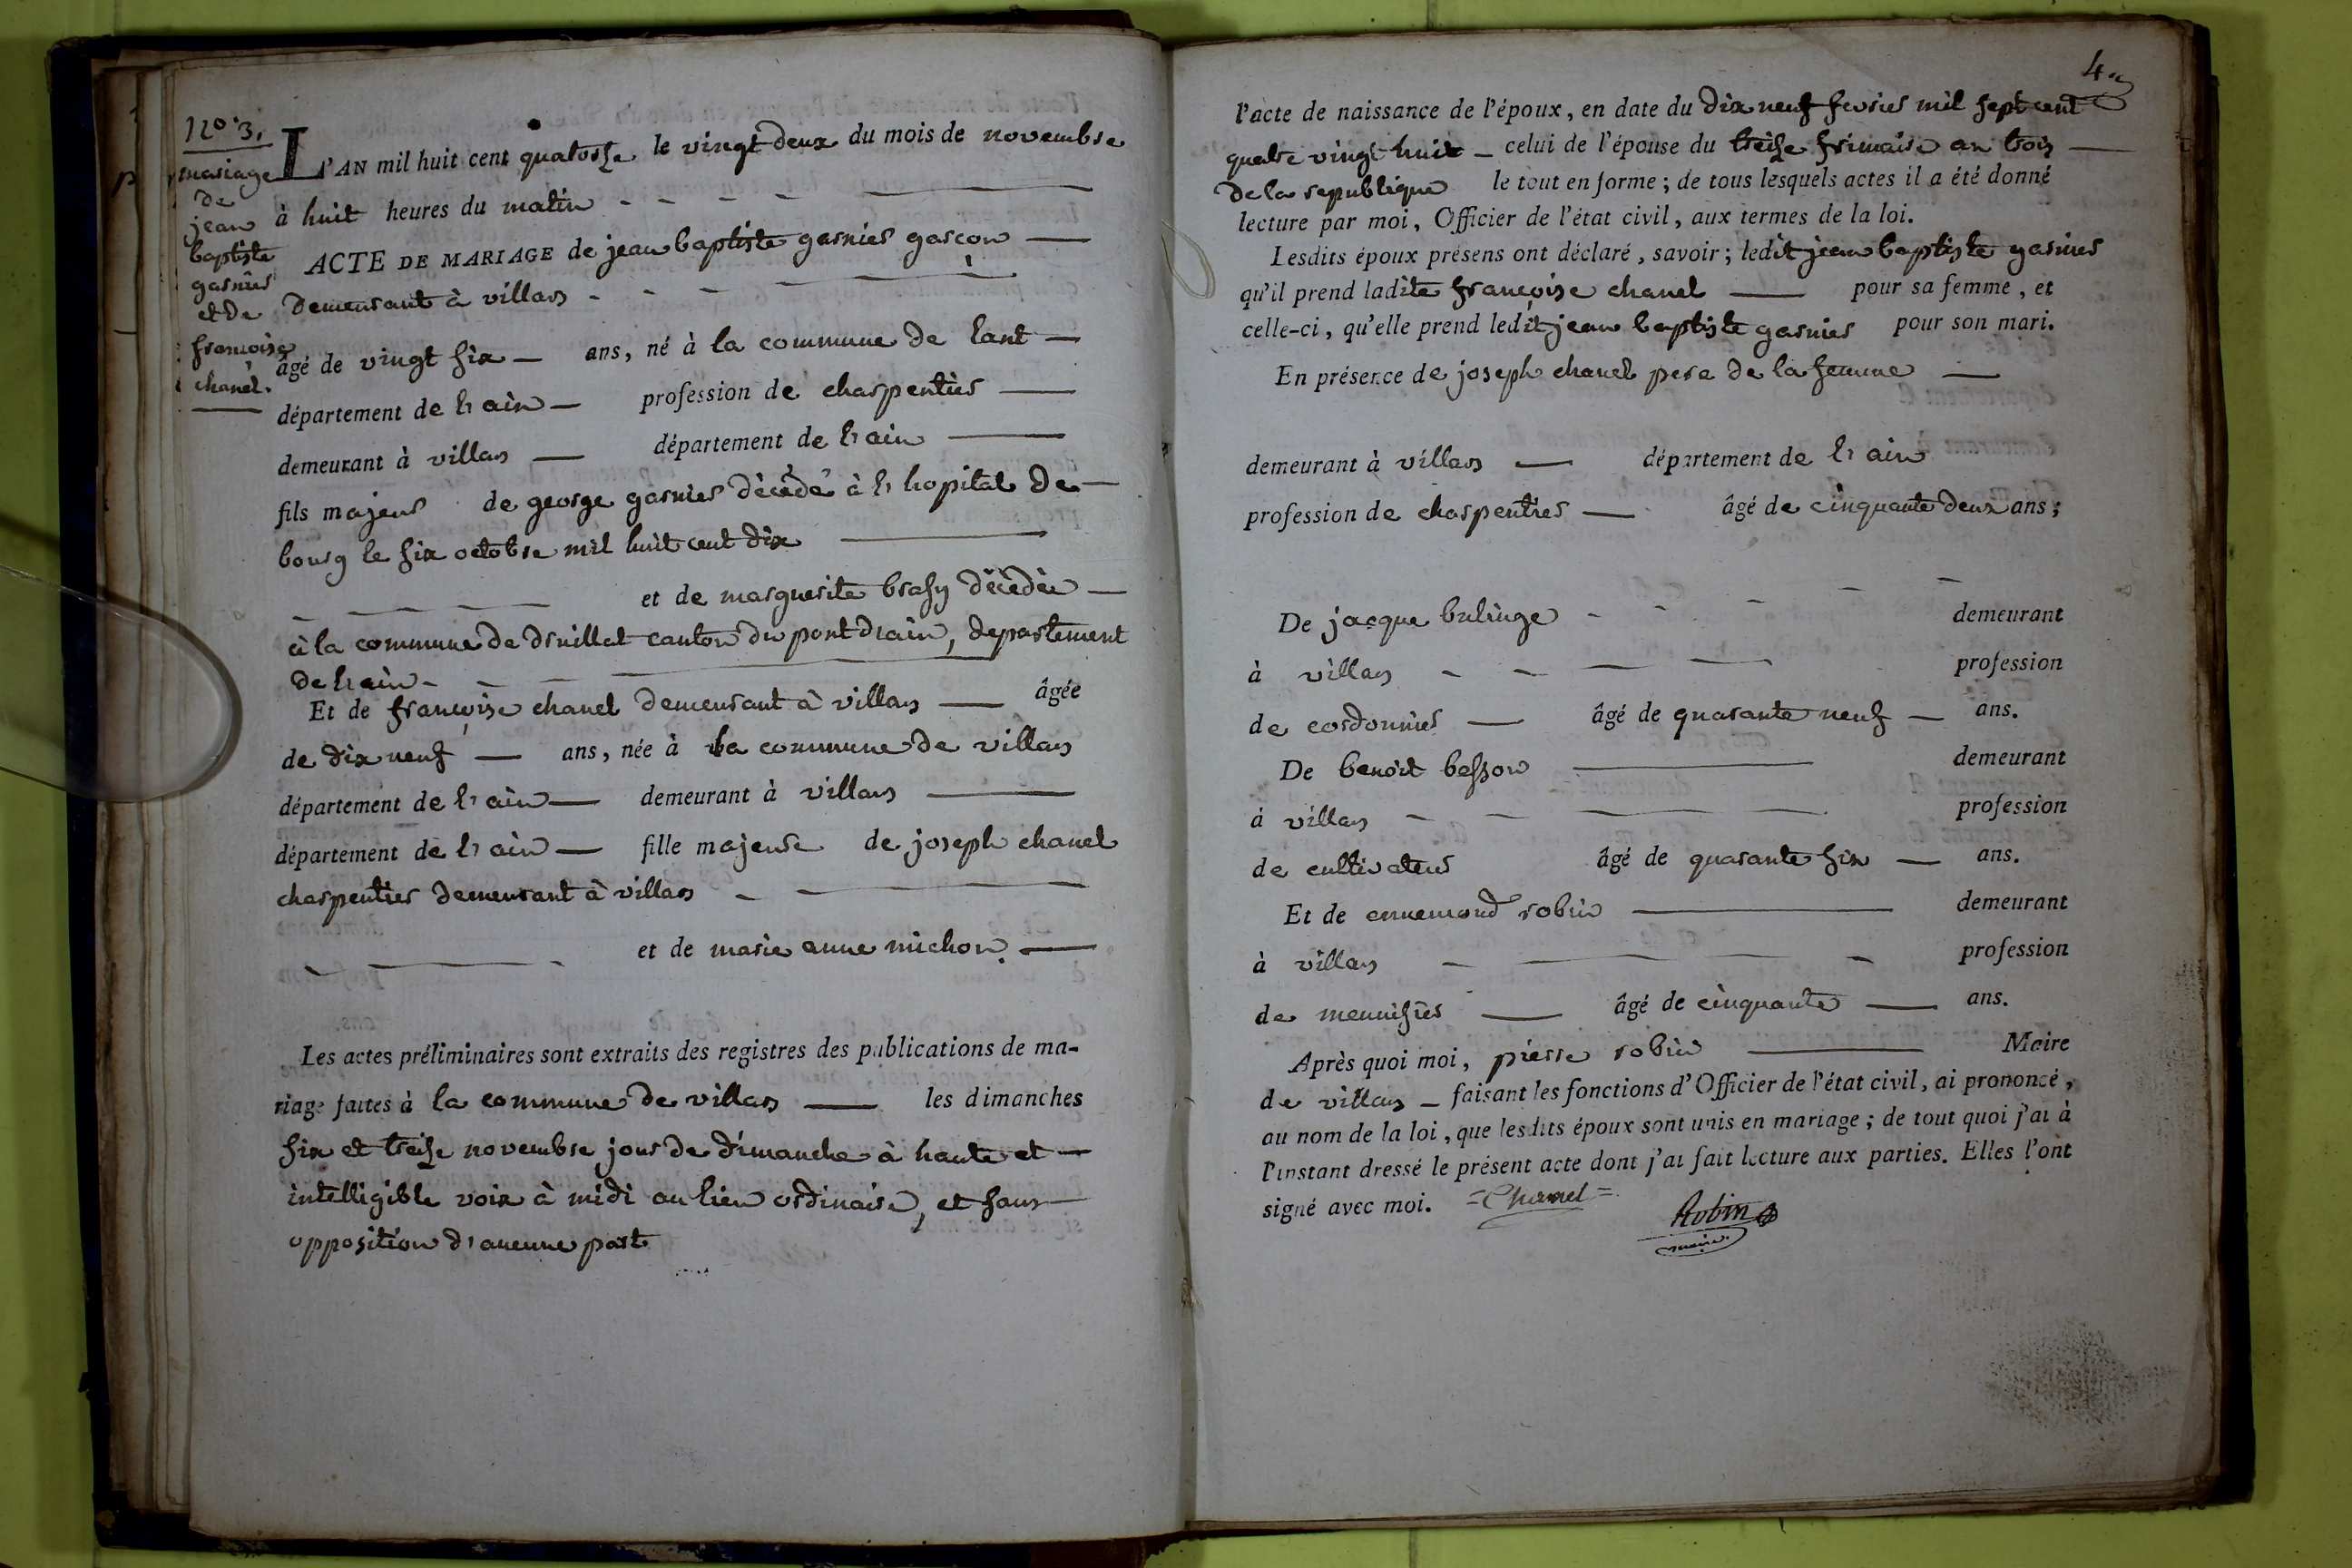 No. 3.
mariage
de
jean
baptiste
garnier
et de
françoise
chanel.
L'AN mil huit cent quatorze le vingt deux du mois de novembre
à huit heures du matin
ACTE DE MARIAGE de jean baptiste garnier garçon
demeurant à villars
âgé de vingt six ans, né à la commune de lant
département de l'ain profession de charpentier
demeurant à villars département de l'ain
fils majeur de george garnier décédé à l'hopital de
bourg le six octobre mil huit cent dix
et de marguerite brasy décédée
à la commune de druillat canton du pont d'ain, departement
de l'ain
Et de françoise chanel demeurant à villars âgée
de dix neuf ans, née à la commune de villars
département de l'ain demeurant à villars
département de l'ain fille majeure de joseph chanel
charpentier demeurant à villars
et de marie anne michon.
Les actes préliminaires sont extraits des registres des publications de ma-
riage faites à la commune de villars les dimanches
six et treize novembre jour de dimanche à haute et
intelligible voix à midi au lieu ordinaire, et sans
opposition d'aucune part
4
l'acte de naissance de l'époux, en date du dix neuf fevrier mil sept cent
quatre vingt huit celui de l'épouse du treize frimaire an trois
de la republique le tout en forme ; de tous lesquels actes il a été donné
lecture par moi, Officier de l'état civil, aux termes de la loi.
Lesdits époux présens ont déclaré, savoir ; ledit jean baptiste garnier
qu'il prend ladite françoise chanel pour sa femme, et
celle-ci, qu'elle prend ledit jean baptiste garnier pour son mari.
En présence de joseph chanel pere de la femme
demeurant à villars département de l'ain
profession de charpentier âgé de cinquante deux ans ;
De jacque bulinge demeurant
à villars profession
de cordonnier âgé de quarante neuf ans.
De benoit besson demeurant
à villars profession
de cultivateur âgé de quarante six ans.
Et de ennemond robin demeurant
à villars profession
de menuisier âgé de cinquante ans.
Après quoi moi, pierre robin Maire
de villars faisant les fonctions d'Officier de l'état civil, ai prononcé,
au nom de la loi, que lesdits époux sont unis en mariage ; de tout quoi j'ai à
l'instant dressé le présent acte dont j'ai fait lecture aux parties. Elles l'ont
signé avec moi. =Chanel= Robin
maire.